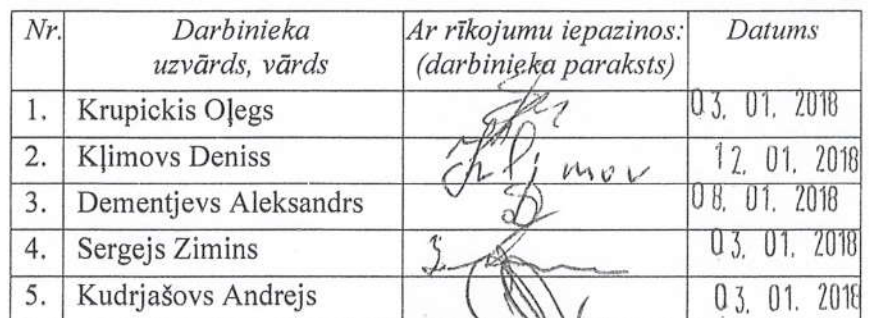 Nr. Darbinieka uzvārds, vārds Ar rīkojumu iepazinos: (darbinieka paraksts) Datums
1. Krupickis Oļegs 03. 01. 2018
2. Kļimovs Deniss Klimov 12. 01. 2018
3. Dementjevs Aleksandrs 08. 01. 2018
4. Sergejs Zimins 03. 01. 2018
5. Kudrjašovs Andrejs 03. 01. 2018